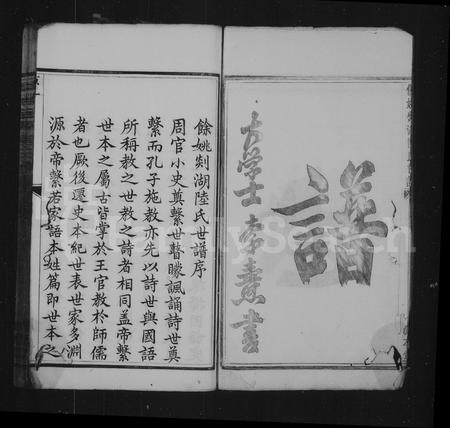 譜
大學士李熹書
餘姚剡湖陸氏世譜序
周官小史奠繫世瞽矇諷誦詩世奠
繫而孔子施教亦先以詩世與國語
所稱教之世教之詩者相同蓋帝繫
世本之屬古皆掌於王官教於師儒
者也厥後遷史本紀世表世家多淵
源於帝繫若家語本姓篇即世本之
FamilySearch